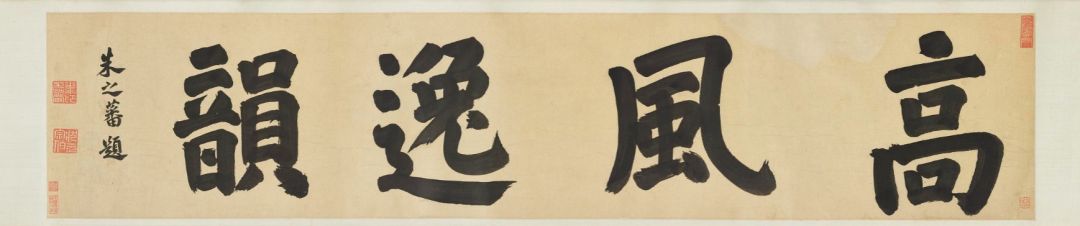 高風逸韻
朱之蕃題